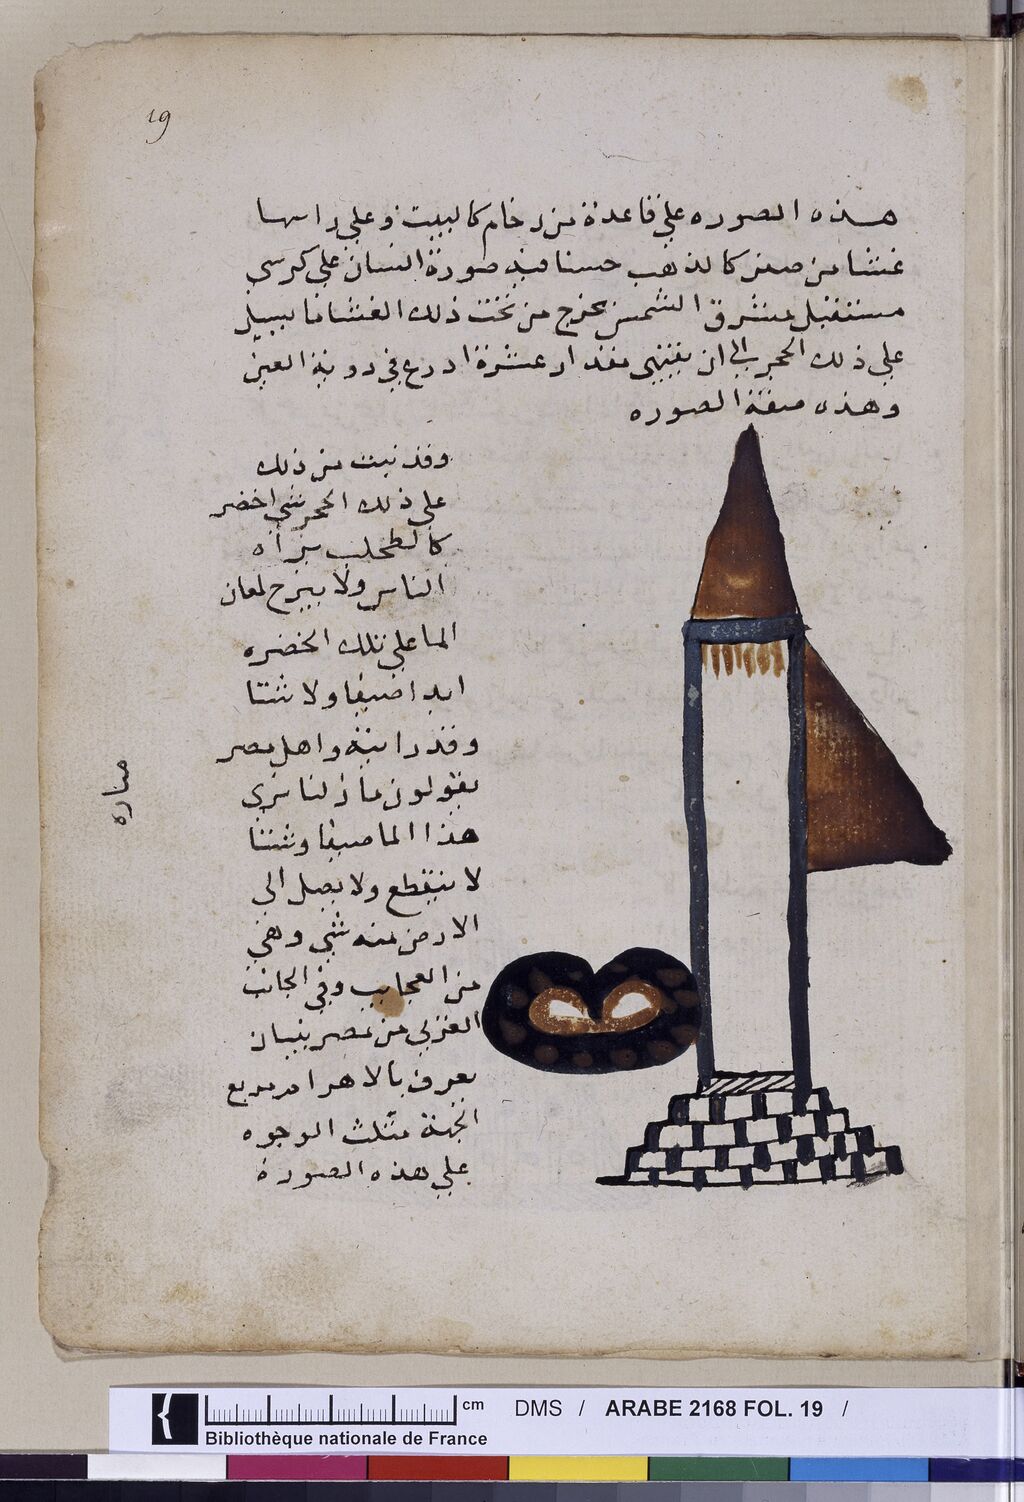 19
هذه الصوره علي قاعدة من رخام كالبيت وعلي راسها
غشا من صفر كالذهب حسنا فيه صورة انسان علي كرسي
مستقبل مشرق الشمس يخرج من تحت ذلك الغشا ما يسيل
علي ذلك الحجر الي ان ينتهي مقدار عشرة ادرع في روية العين
وهذه صفة الصوره
وقد نبت من ذلك
علي ذلك الحجر شي اخضر
كالطحلب يراه
الناس ولا يبرح لمعان
الما علي تلك الخضره
ابدا صيفا ولا شتا
وقد رايته واهل مصر
يقولون مازلنا نري
هذا الما صيفا وشتا
لا ينقطع ولا يصل الي
الارض منه شي وهي
من العجايب وفي الجانب
الغربي من مصر بنيان
يعرف بالاهرام مربع
مثلث الوجوه
علي هذه الصورة
مناره
cm
DMS / ARABE 2168 FOL. 19 /
Bibliothèque nationale de France